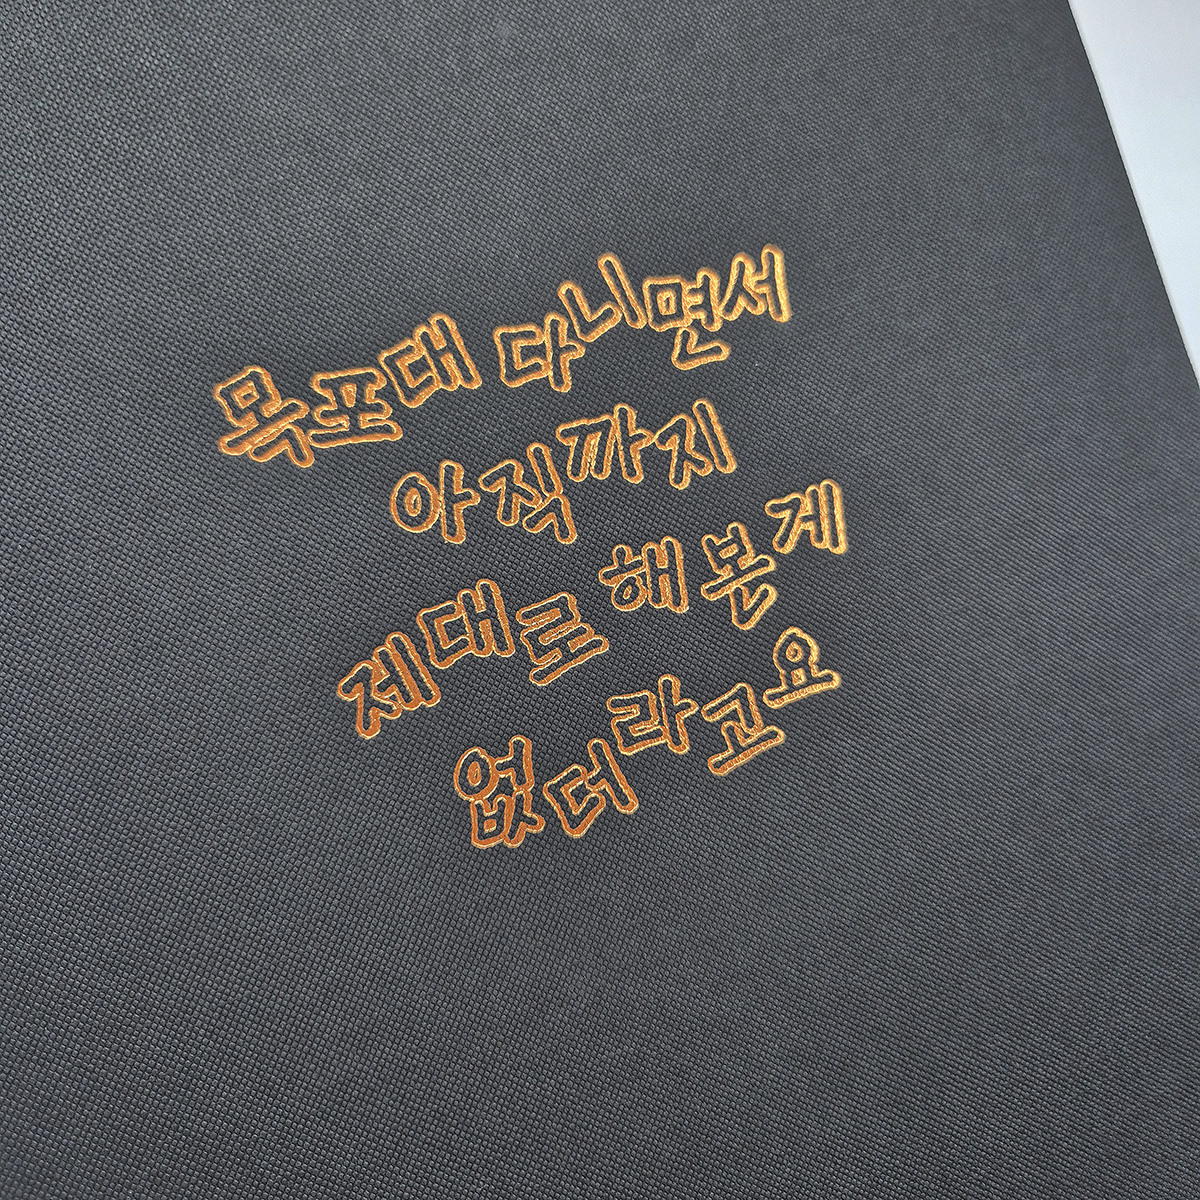 목포대 다니면서
아직까지
제대로 해 본 게
없더라고요